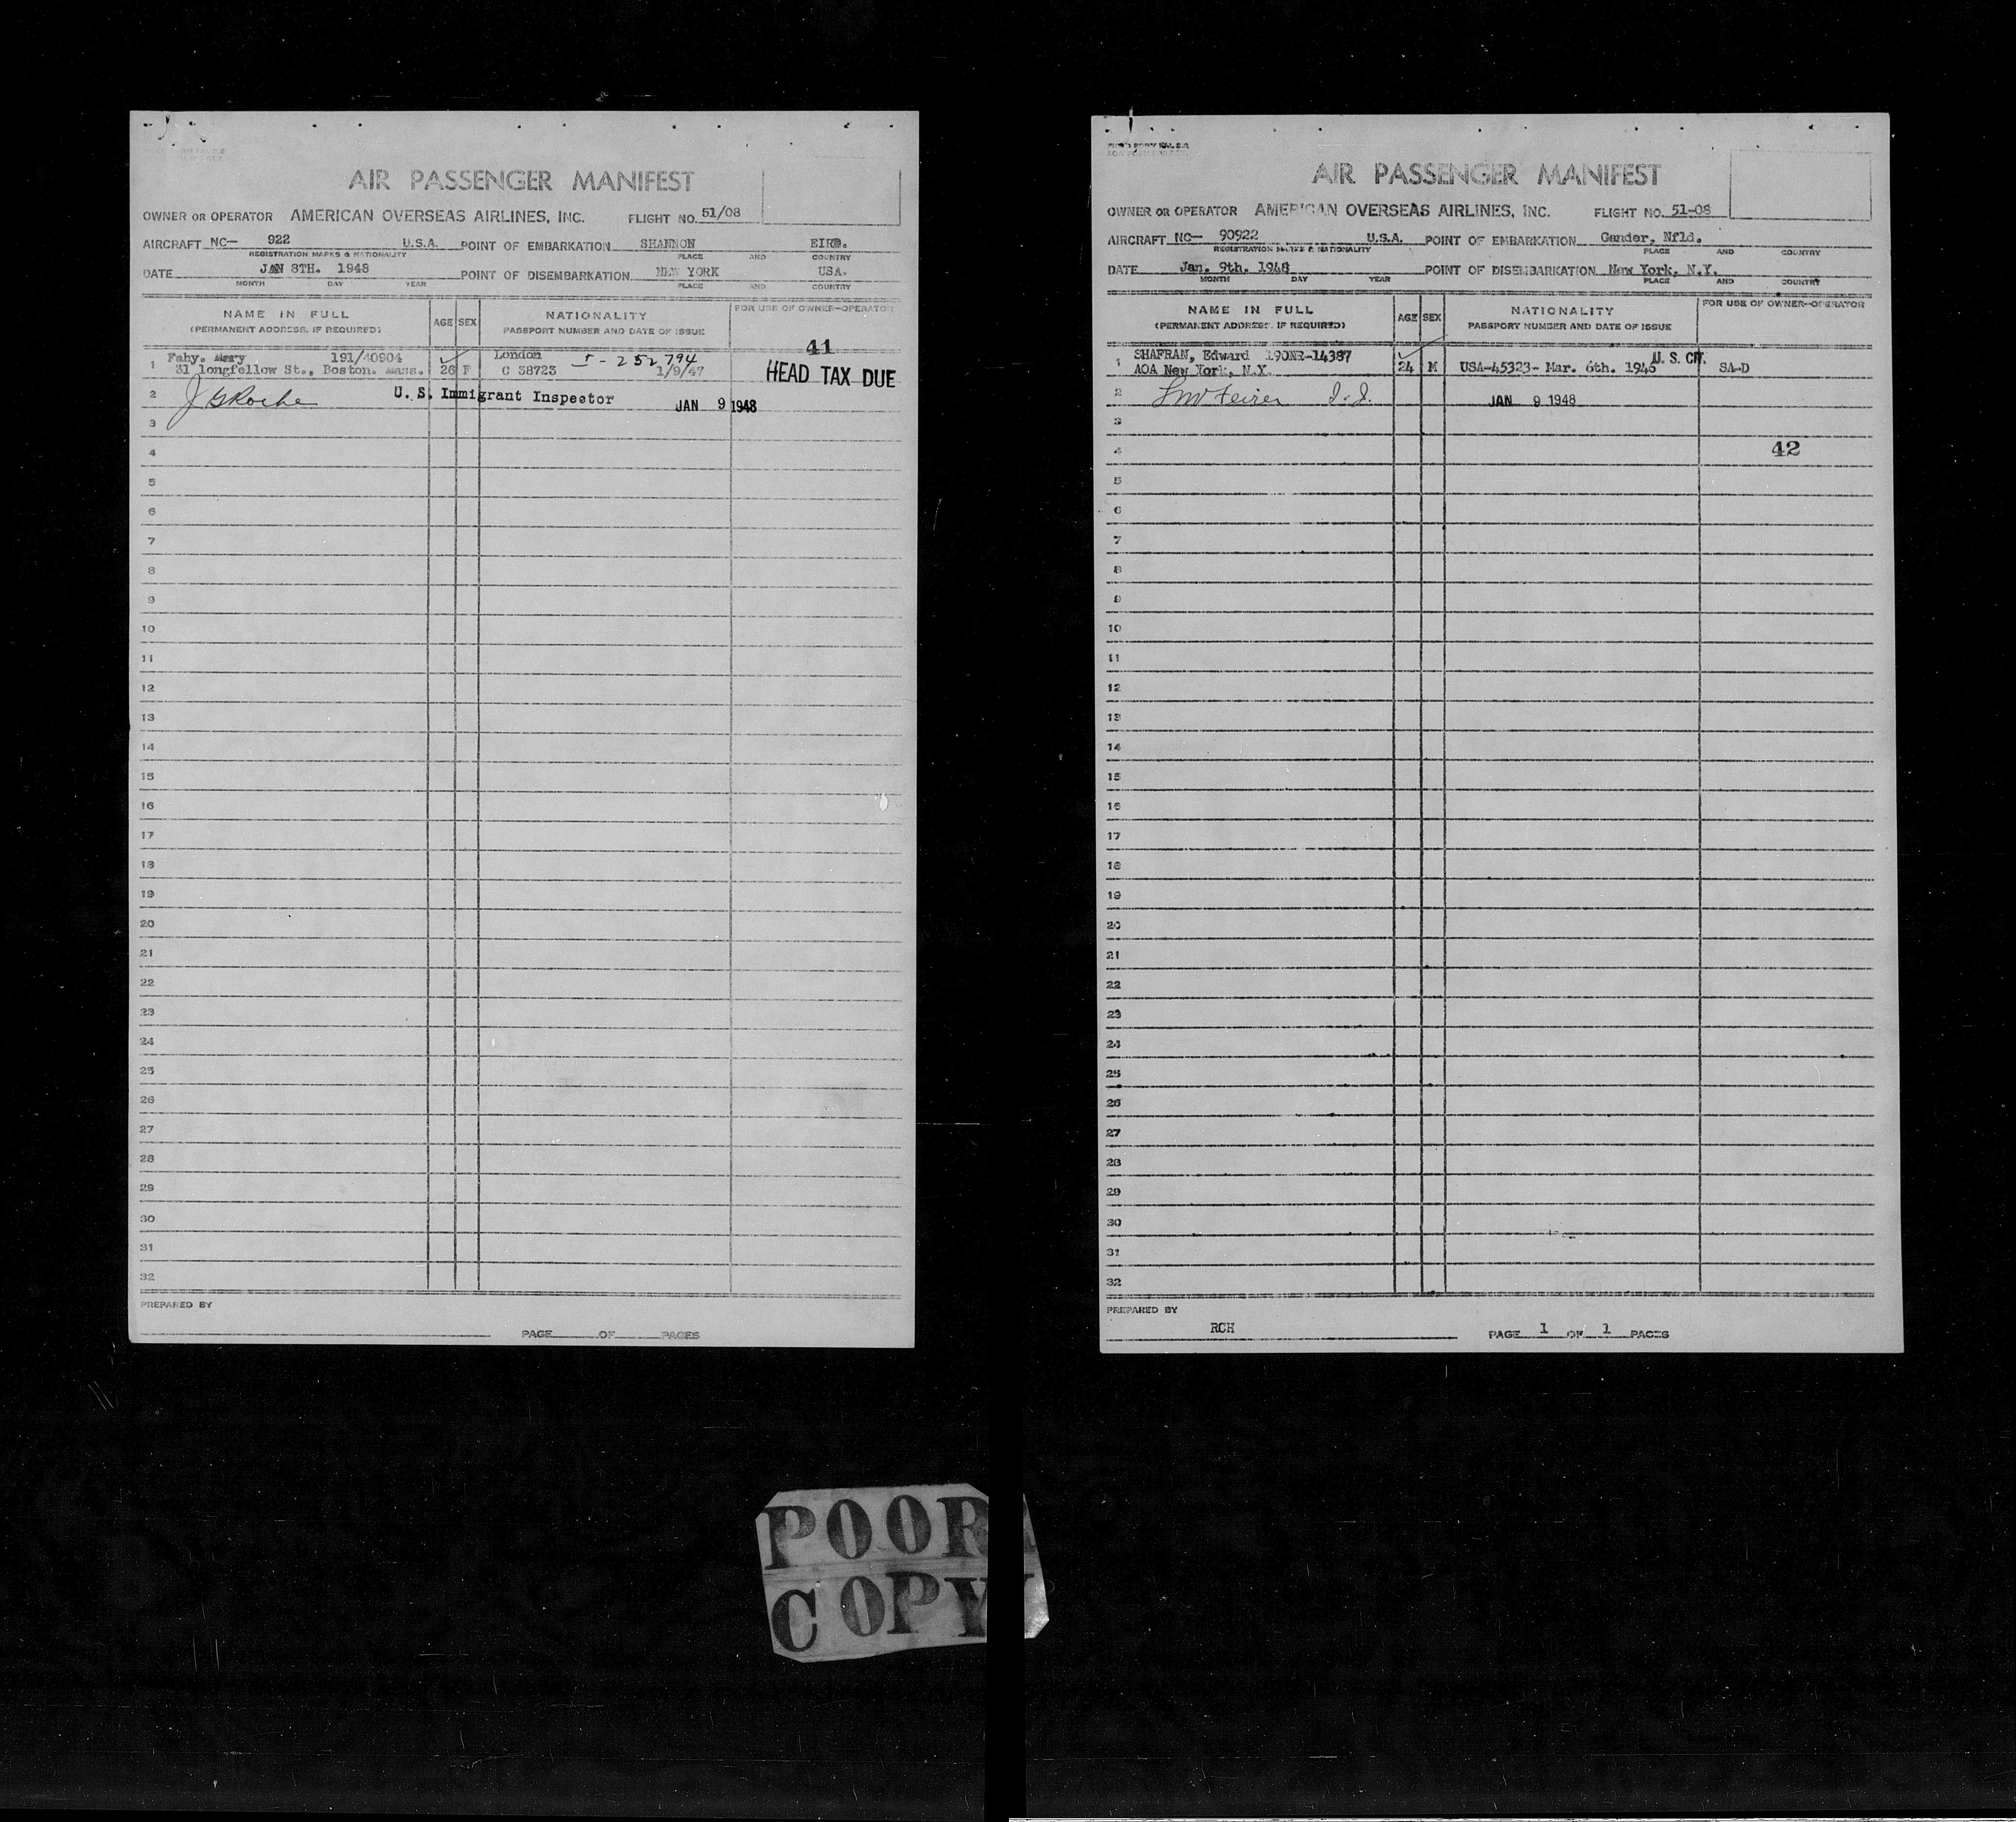 AIR PASSENGER MANIFEST
OWNER OR OPERATOR AMERICAN OVERSEAS AIRLINES, INC. FLIGHT NO. 51/08
AIRCRAFT NC— 922 U.S.A. POINT OF EMBARKATION SHANNON EIRE.
REGISTRATION MARKS & NATIONALITY PLACE AND COUNTRY
DATE JAN 8TH. 1948 POINT OF DISEMBARKATION NEW YORK USA.
MONTH DAY YEAR PLACE AND COUNTRY
NAME IN FULL AGE SEX NATIONALITY FOR USE OF OWNER—OPERATOR
(PERMANENT ADDRESS, IF REQUIRED) PASSPORT NUMBER AND DATE OF ISSUE
41
1 Fahy. Mary 191/40904 London I-252794
31 longfellow St., Boston. Mass. 26 F C 38723 1/9/47 HEAD TAX DUE
2 J G Roche U. S. Immigrant Inspector JAN 9 1948
3
4
5
6
7
8
9
10
11
12
13
14
15
16
17
18
19
20
21
22
23
24
25
26
27
28
29
30
31
32
PREPARED BY
PAGE OF PAGES
AIR PASSENGER MANIFEST
OWNER OR OPERATOR AMERICAN OVERSEAS AIRLINES, INC. FLIGHT NO. 51-08
AIRCRAFT NC— 90922 U.S.A. POINT OF EMBARKATION Gander, Nfld.
REGISTRATION MARKS & NATIONALITY PLACE AND COUNTRY
DATE Jan. 9th. 1948 POINT OF DISEMBARKATION New York, N.Y.
MONTH DAY YEAR PLACE AND COUNTRY
NAME IN FULL AGE SEX NATIONALITY FOR USE OF OWNER—OPERATOR
(PERMANENT ADDRESS, IF REQUIRED) PASSPORT NUMBER AND DATE OF ISSUE
1 SHAFRAN, Edward 190NR-14387 U. S. CIT.
AOA New York, N.Y. 24 M USA-45323- Mar. 6th. 1946 SA-D
2 JAN 9 1948
3
4 42
5
6
7
8
9
10
11
12
13
14
15
16
17
18
19
20
21
22
23
24
25
26
27
28
29
30
31
32
PREPARED BY
RCH PAGE 1 OF 1 PAGES
POOR
COPY